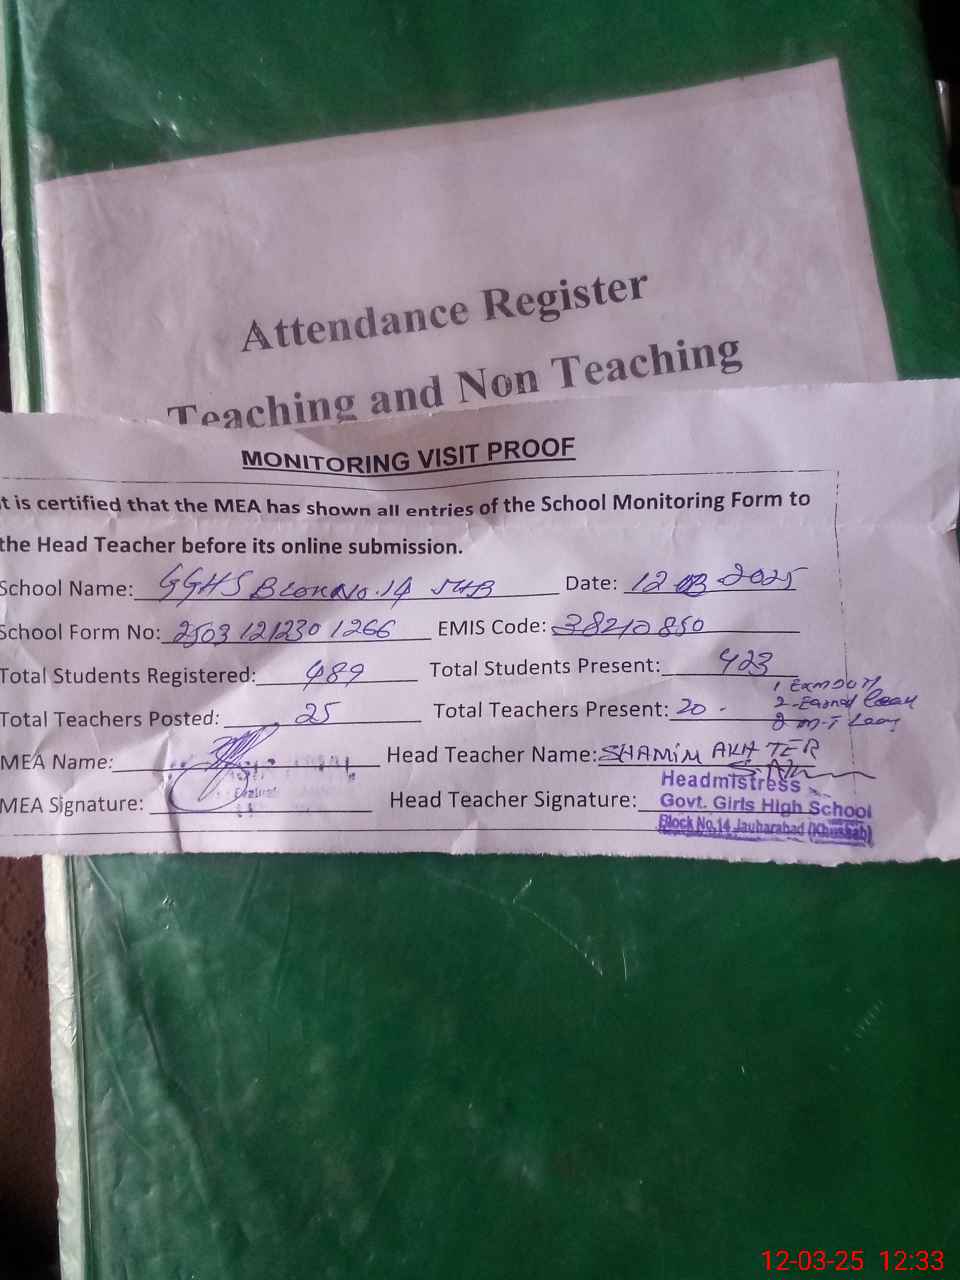 Attendance Register
Teaching and Non Teaching
MONITORING VISIT PROOF
t is certified that the MEA has shown all entries of the School Monitoring Form to
the Head Teacher before its online submission.
School Name: GGHS Block No.14 JHB Date: 12-03-2025
School Form No: 2503121230 1266 EMIS Code: 38210850
Total Students Registered: 489 Total Students Present: 423
Total Teachers Posted: 25 Total Teachers Present: 20
1 Exm Duty
2-Earned Leave
2 M-T Leav
MEA Name: Head Teacher Name: SHAMIM AKHTER
MEA Signature: Head Teacher Signature:
Headmistress
Govt. Girls High School
Block No.14 Jauharabad (Khushab)
12-03-25 12:33